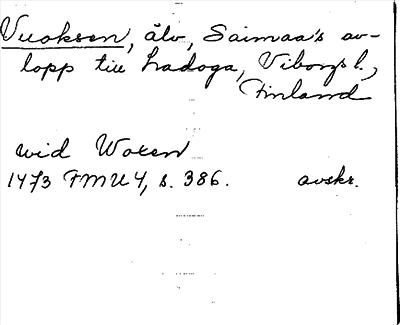 Vuoksen, älv, Saimaa's av-
lopp till Ladoga, Viborgs l.,
Finland
wid Woxen
1473 FMU 4, s. 386. avskr.